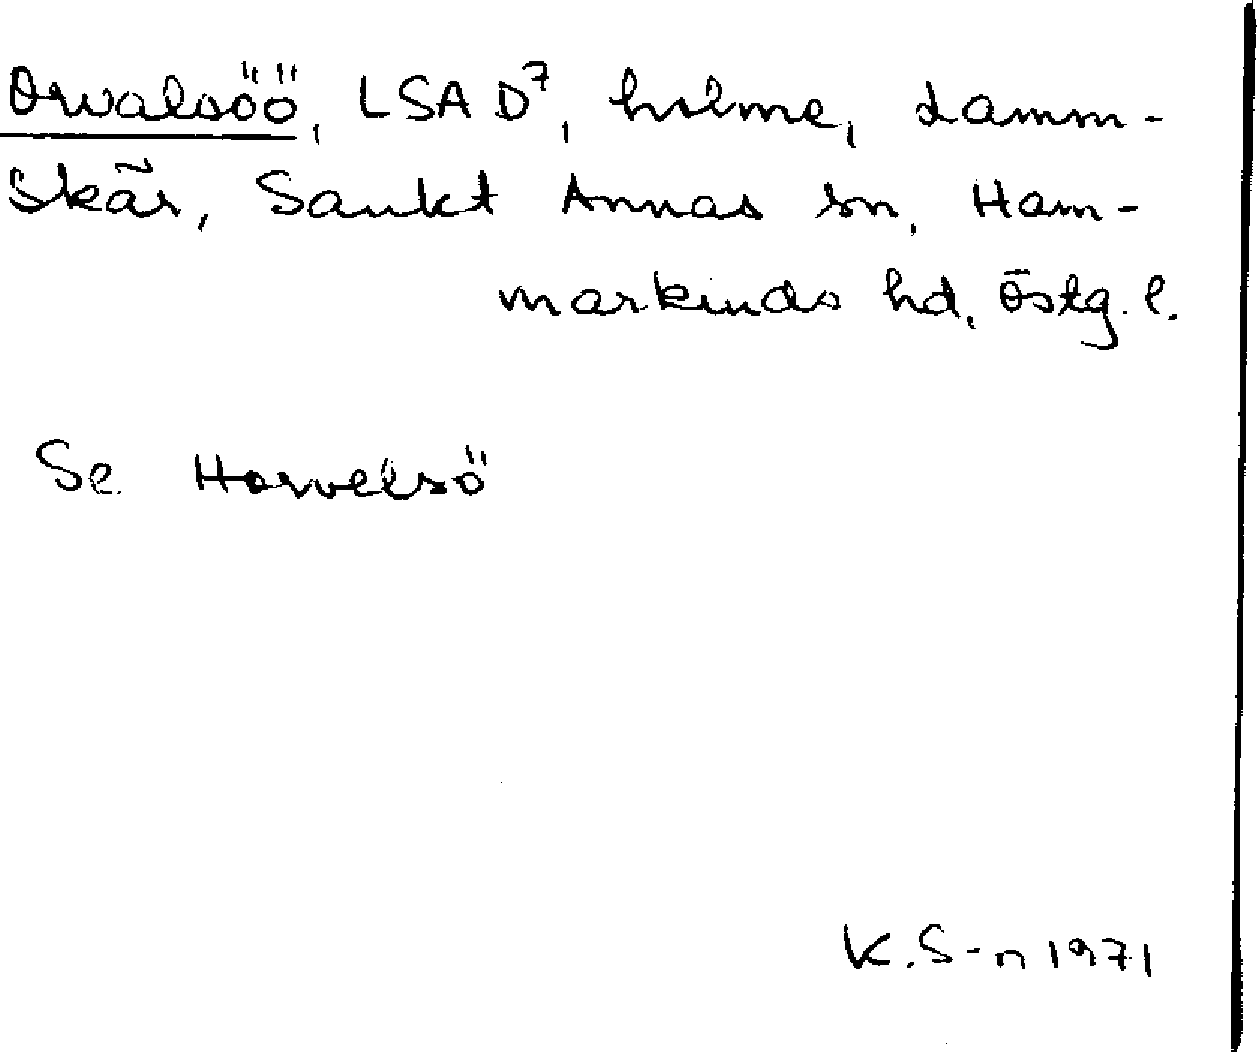 Orvalsöö, LSA D7, holme, Lamm-
skär, Sankt Annas sn, Ham-
markinds hd, Östg. l.
Se Horvelsö
K.S-n 1971